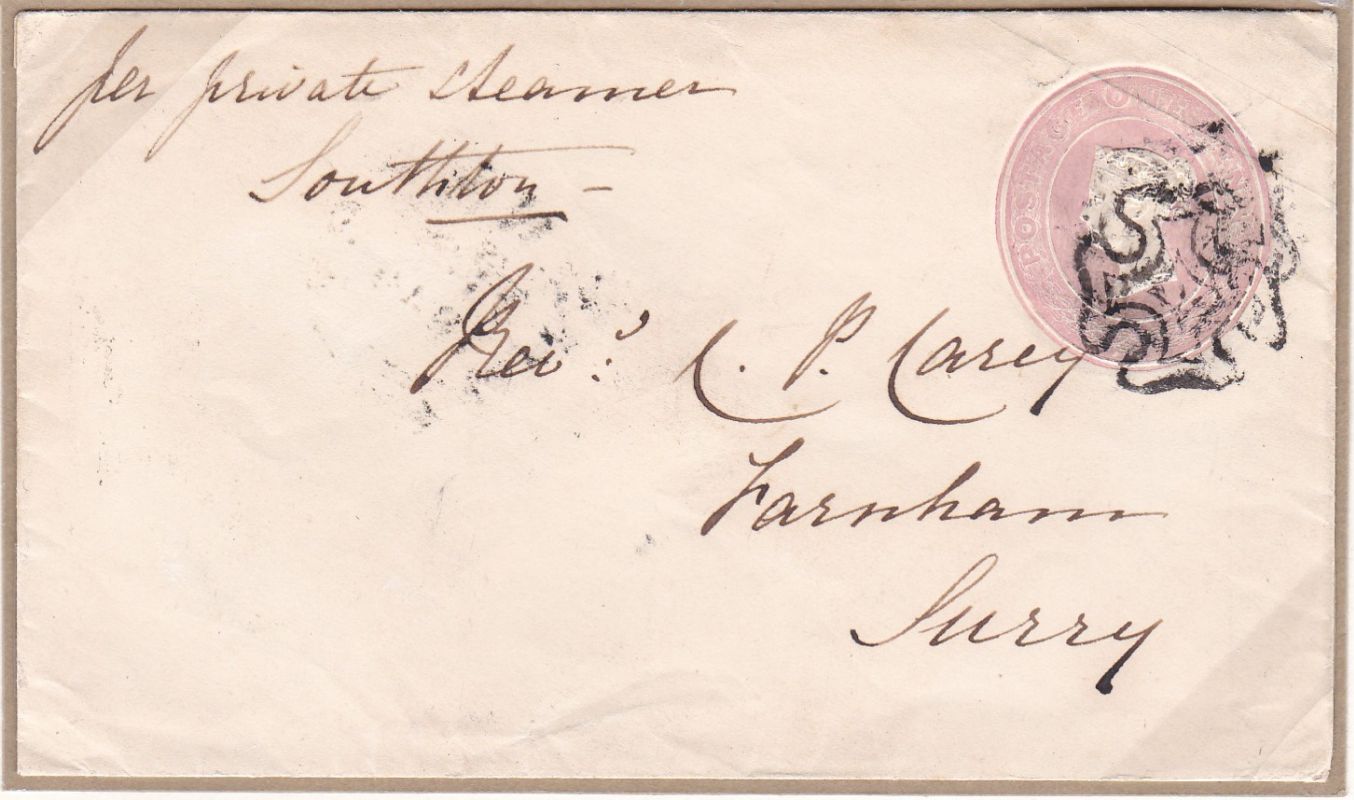 per private steamer
Southton –
Revd. C. P. Carey
Farnham
Surry
POSTAGE ONE PENNY